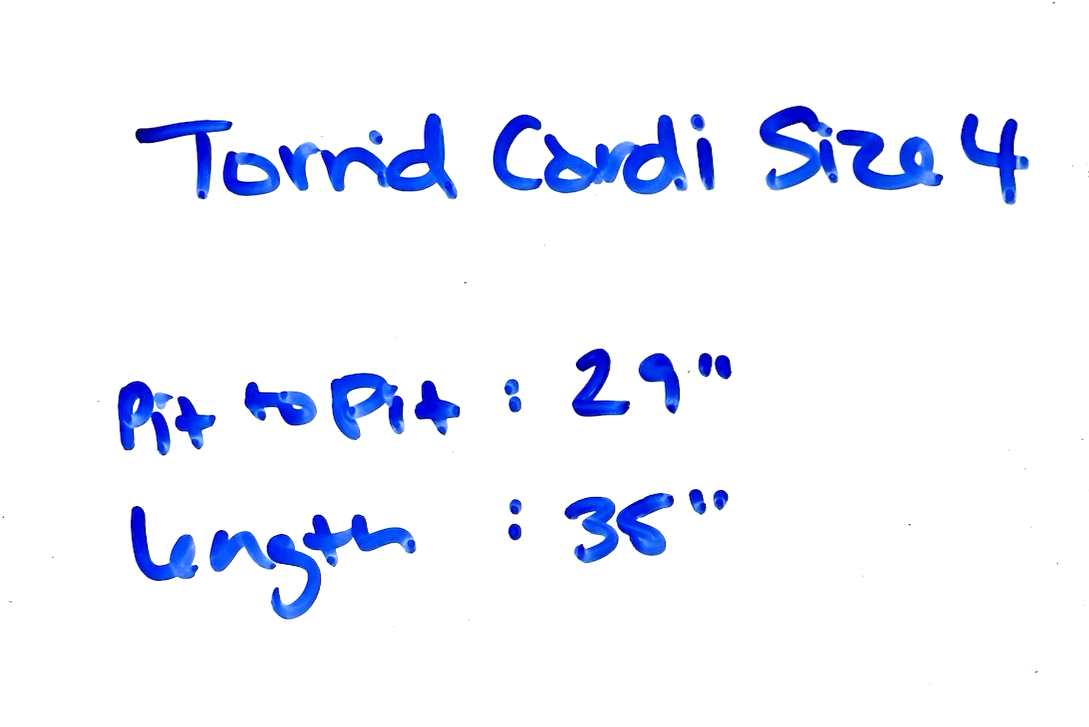 Torrid Cardi Size 4
Pit to Pit : 29"
Length : 35"